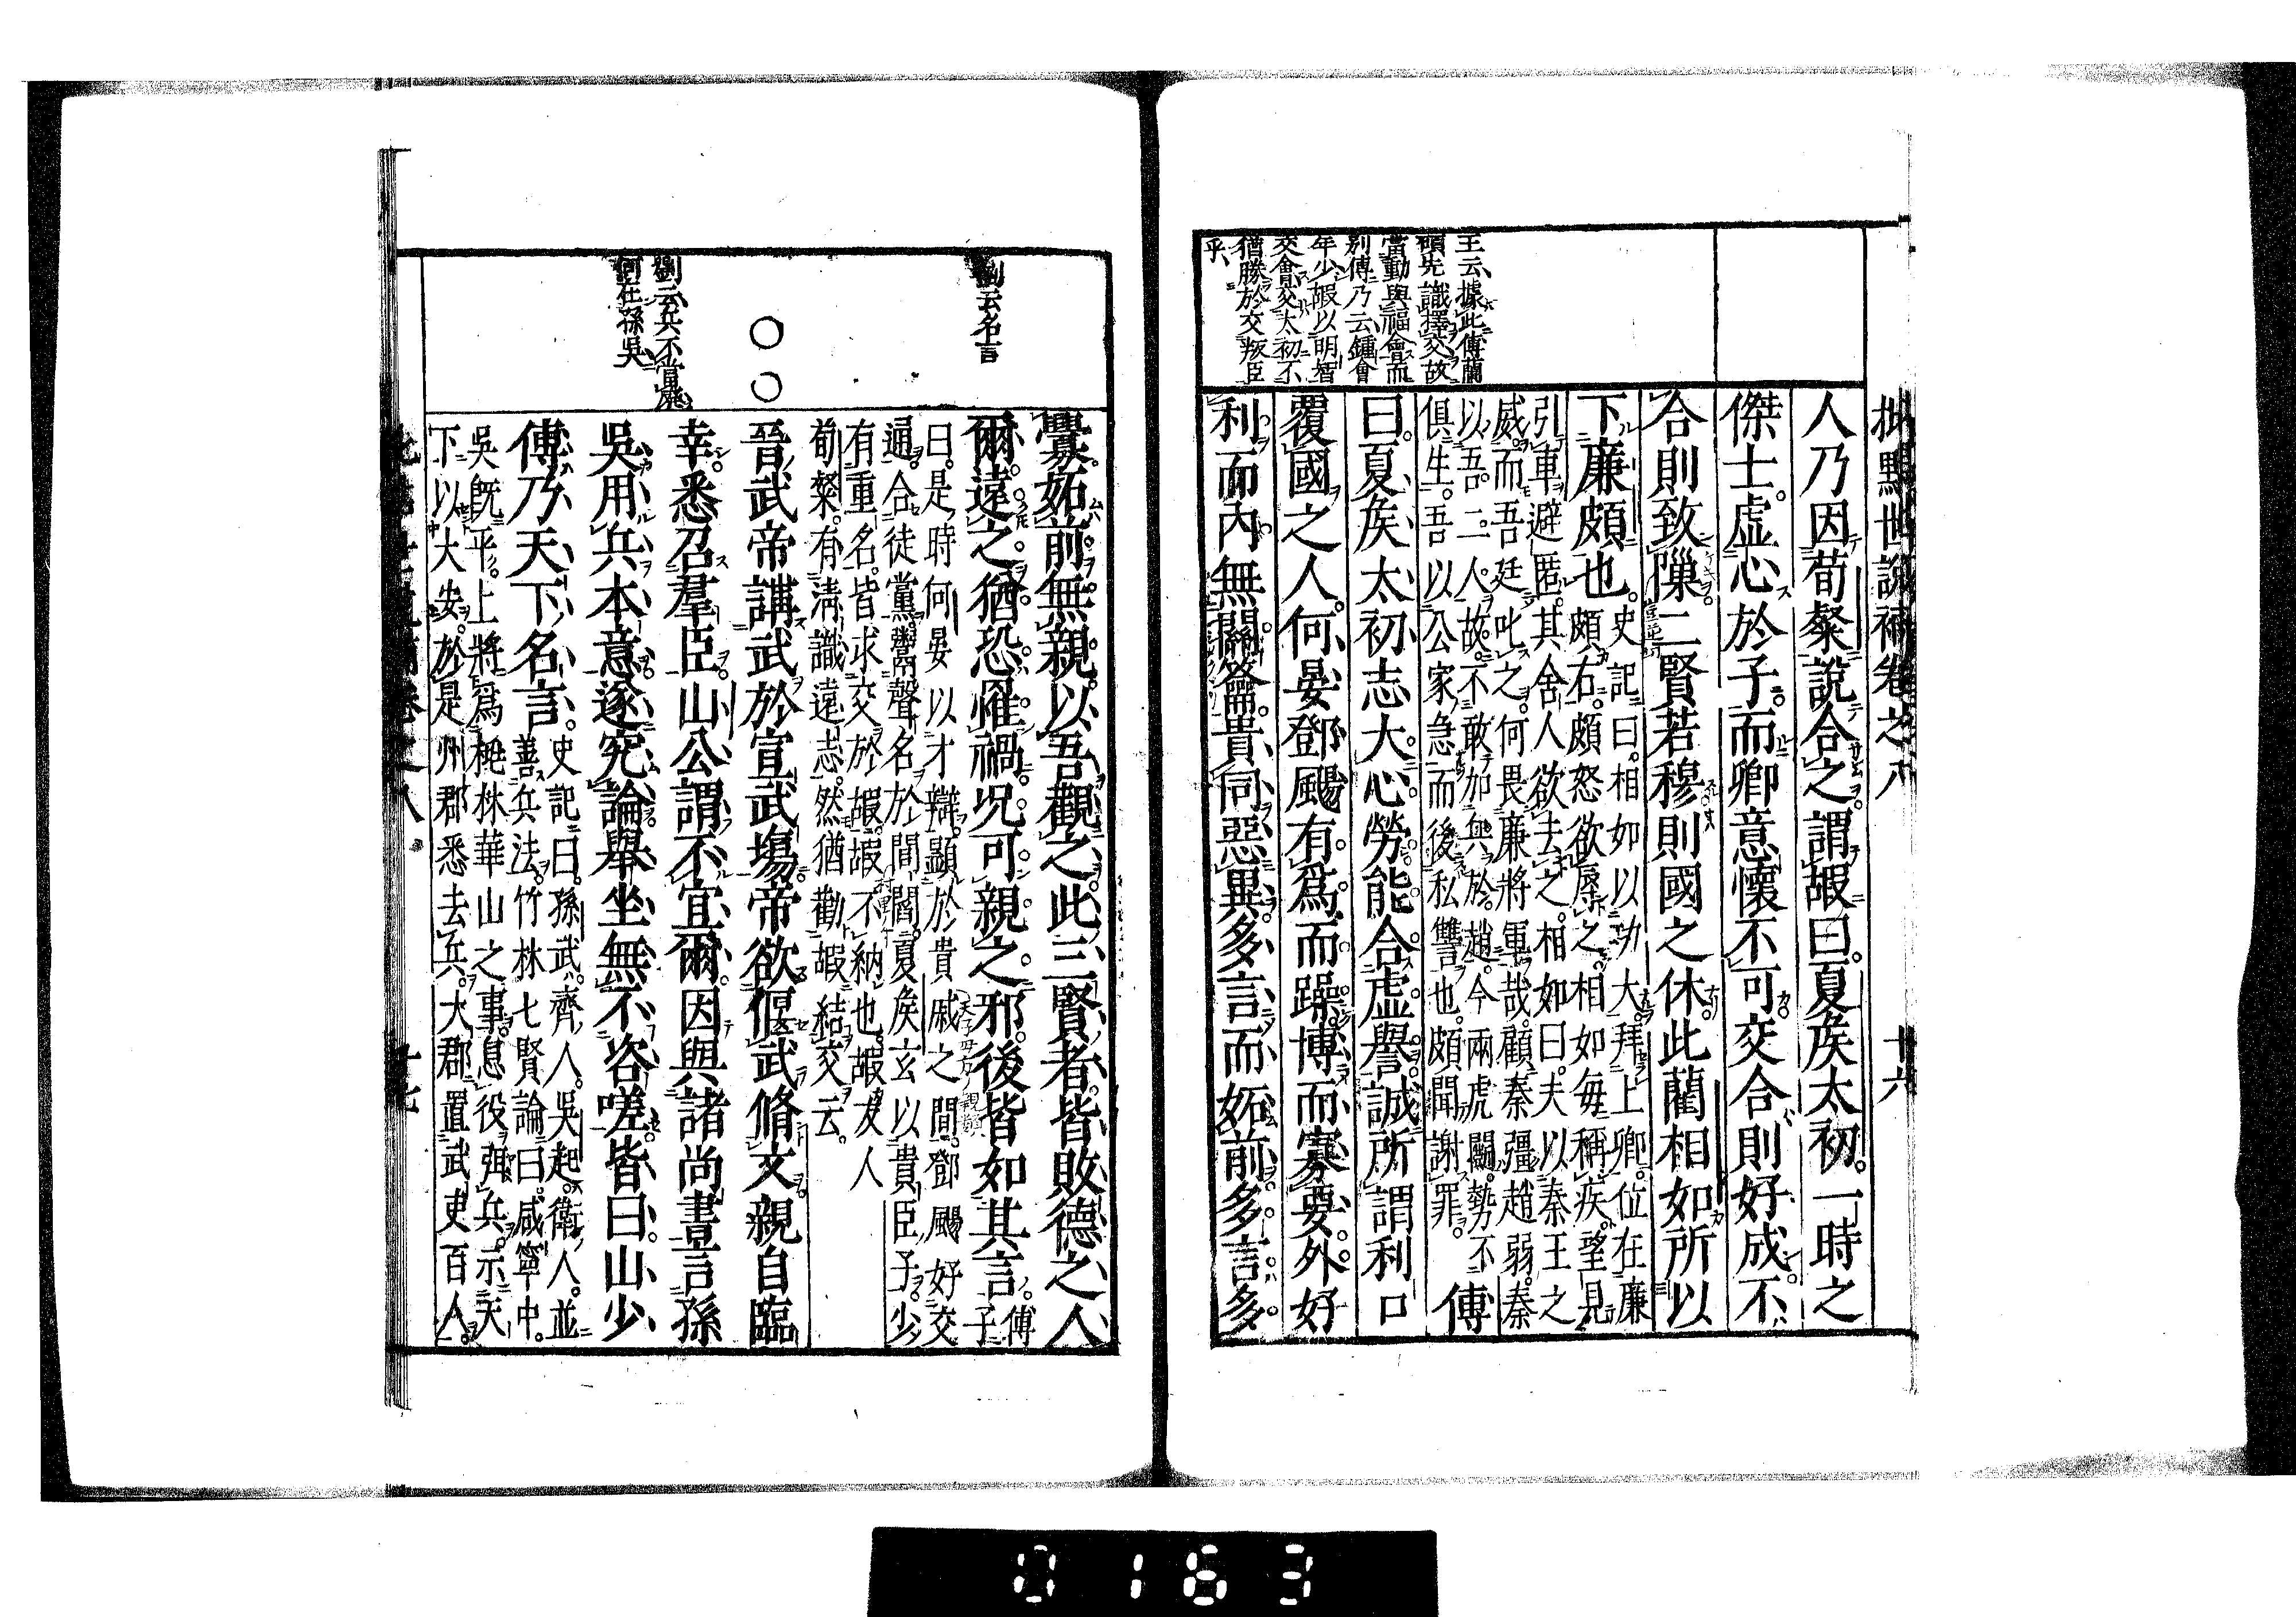 批點世說補卷之八 十六
王云據此傅蘭
碩先識擇交故
當動與福會而
別傳乃云鍾會
年少嘏以明智
交會交太初不
猶勝於交叛臣
乎
人乃因荀粲說合之謂嘏曰夏侯太初一時之
傑士虛心於子而卿意懷不可交合則好成不
合則致隟二賢若穆則國之休此藺相如所以
下廉頗也史記曰相如以功大拜上卿位在廉
頗右頗怒欲辱之相如每稱疾望見
引車避匿其舍人欲去之相如曰夫以秦王之
威而吾廷叱之何畏廉將軍哉顧秦彊趙弱秦
以吾二人故不敢加兵於趙今兩虎鬭勢不
俱生吾以公家急而後私讐也頗聞謝罪 傅
曰夏侯太初志大心勞能合虛譽誠所謂利口
覆國之人何晏鄧颺有爲而躁博而寡要外好
利而內無關籥貴同惡異多言而妬前多言多
釁妬前無親以吾觀之此三賢者皆敗德之人
爾遠之猶恐罹禍況可親之邪後皆如其言傅子
曰是時何晏以才辯顯於貴戚之間鄧颺好交
通合徒黨鬻聲名於閭閻夏侯玄以貴臣子少
有重名皆求交於嘏嘏不納也嘏友人
荀粲有淸識遠志然猶勸嘏結交云
晉武帝講武於宣武塲帝欲偃武脩文親自臨
幸悉召羣臣山公謂不宜爾因與諸尚書言孫
吳用兵本意遂究論舉坐無不咨嗟皆曰山少
傅乃天下名言史記曰孫武齊人吳起衛人並
善兵法竹林七賢論曰咸寧中
吳旣平上將爲桃林華山之事息役弭兵示天
下以大安於是州郡悉去兵大郡置武吏百人
劉云名言
〇〇
劉云兵不當廢
何在孫吳